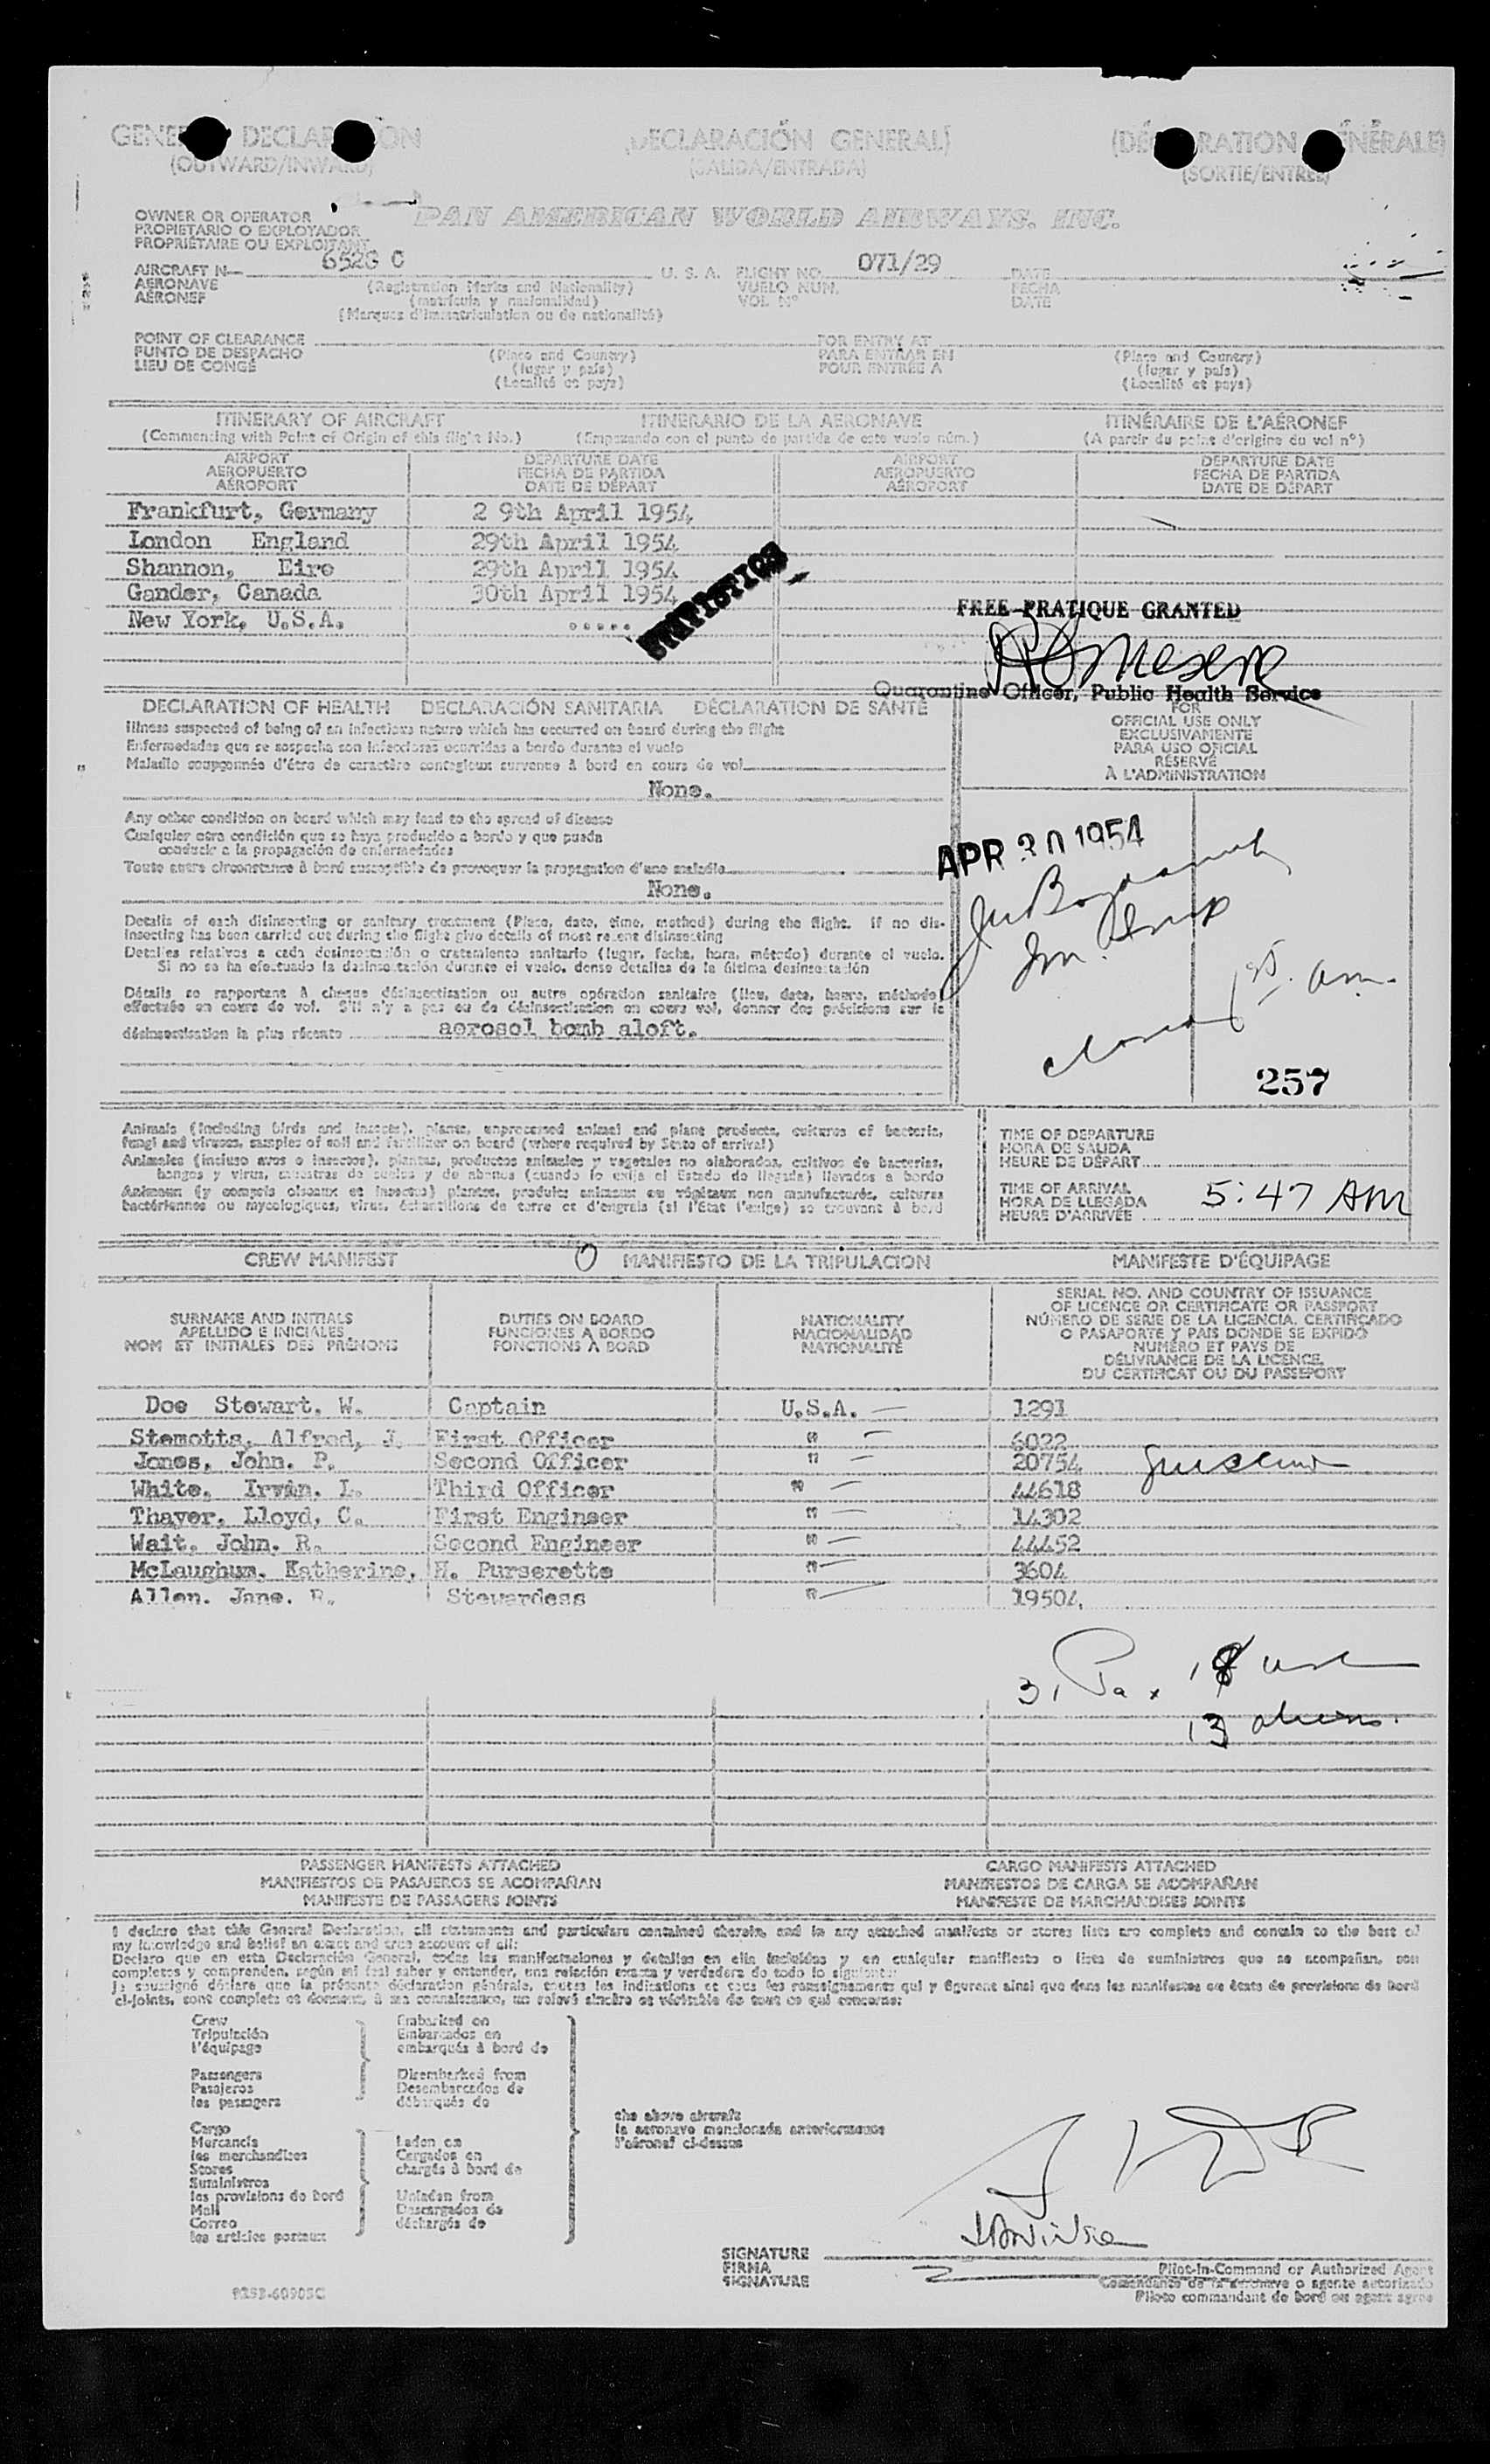 (DECLARACIÓN GENERAL)
(OUTWARD/INWARD) (SALIDA/ENTRADA) (SORTIE/ENTRÉE)
OWNER OR OPERATOR PAN AMERICAN WORLD AIRWAYS, INC.
PROPIETARIO O EXPLOTADOR
PROPRIÉTAIRE OU EXPLOITANT
AIRCRAFT N— C U. S. A. FLIGHT NO. 071/29 DATE
AÉRONAVE (Registration Marks and Nationality) VUELO NUM. FECHA
AÉRONEF (matrícula y nacionalidad) VOL Nº DATE
(Marques d'immatriculation ou de nationalité)
POINT OF CLEARANCE FOR ENTRY AT
PUNTO DE DESPACHO (Place and Country) PARA ENTRAR EN (Place and Country)
LIEU DE CONGÉ (lugar y país) POUR ENTRÉE A (lugar y país)
(Localité et pays) (Localité et pays)
ITINERARY OF AIRCRAFT ITINERARIO DE LA AERONAVE ITINÉRAIRE DE L'AÉRONEF
(Commencing with Point of Origin of this flight No.) (Empezando con el punto de partida de este vuelo núm.) (A partir du point d'origine du vol nº)
AIRPORT DEPARTURE DATE AIRPORT DEPARTURE DATE
AEROPUERTO FECHA DE PARTIDA AEROPUERTO FECHA DE PARTIDA
AÉROPORT DATE DE DÉPART AÉROPORT DATE DE DÉPART
Frankfurt, Germany 2 9th April 1954
London England 29th April 1954
Shannon, Eire 29th April 1954
Gander, Canada 30th April 1954
STATISTICS
New York, U.S.A. .....
FREE PRATIQUE GRANTED
Quarantine Officer, Public Health Service
DECLARATION OF HEALTH DECLARACIÓN SANITARIA DÉCLARATION DE SANTÉ
FOR
OFFICIAL USE ONLY
EXCLUSIVAMENTE
PARA USO OFICIAL
RÉSERVÉ
À L'ADMINISTRATION
Illness suspected of being of an infectious nature which has occurred on board during the flight
Enfermedades que se sospecha son infecciosas ocurridas a bordo durante el vuelo
Maladie soupçonnée d'être de caractère contagieux survenue à bord en cours de vol
None.
Any other condition on board which may lead to the spread of disease
Cualquier otra condición que se haya producido a bordo y que pueda
conducir a la propagación de enfermedades
Toute autre circonstance à bord susceptible de provoquer la propagation d'une maladie
None.
APR 30 1954
Details of each disinsecting or sanitary treatment (Place, date, time, method) during the flight. If no dis-
insecting has been carried out during the flight give details of most recent disinsecting
Detalles relativos a cada desinsectación o tratamiento sanitario (lugar, fecha, hora, método) durante el vuelo.
Si no se ha efectuado la desinsectación durante el vuelo, dense detalles de la última desinsectación
Détails se rapportant à chaque désinsectisation ou autre opération sanitaire (lieu, date, heure, méthode)
effectuée en cours de vol. S'il n'y a pas eu de désinsectisation en cours vol, donner des précisions sur la
désinsectisation la plus récente aerosol bomb aloft.
257
Animals (including birds and insects), plants, unprocessed animal and plant products, cultures of bacteria,
fungi and viruses, samples of soil and fertilizer on board (where required by State of arrival)
Animales (incluso aves e insectos), plantas, productos animales y vegetales no elaborados, cultivos de bacterias,
hongos y virus, muestras de suelos y de abonos (cuando lo exija el Estado de llegada) llevados a bordo
Animaux (y compris oiseaux et insectes) plantes, produits animaux ou végétaux non manufacturés, cultures
bactériennes ou mycologiques, virus, échantillons de terre et d'engrais (si l'État l'exige) se trouvant à bord
TIME OF DEPARTURE
HORA DE SALIDA
HEURE DE DÉPART
TIME OF ARRIVAL
HORA DE LLEGADA 5:47 AM
HEURE D'ARRIVÉE
CREW MANIFEST O MANIFIESTO DE LA TRIPULACION MANIFESTE D'ÉQUIPAGE
SURNAME AND INITIALS DUTIES ON BOARD NATIONALITY
APELLIDO E INICIALES FUNCIONES A BORDO NACIONALIDAD
NOM ET INITIALES DES PRÉNOMS FONCTIONS À BORD NATIONALITÉ
SERIAL NO. AND COUNTRY OF ISSUANCE
OF LICENCE OR CERTIFICATE OR PASSPORT
NÚMERO DE SERIE DE LA LICENCIA, CERTIFICADO
O PASAPORTE Y PAIS DONDE SE EXPIDÓ
NUMÉRO ET PAYS DE
DÉLIVRANCE DE LA LICENCE,
DU CERTIFICAT OU DU PASSEPORT
Doe Stewart. W. Captain U.S.A. — 1291
Stemotts, Alfred, J. First Officer " — 6022
Jones, John. P. Second Officer " — 20754
White, Irvin. L. Third Officer " — 44618
Thayer, Lloyd, C. First Engineer " — 14302
Wait, John. R. Second Engineer " — 44452
McLaughum, Katherine, H. Purserette " — 3604
Allen. Jane. R. Stewardess " — 19504
31 Pax. 18
13 aliens.
PASSENGER MANIFESTS ATTACHED CARGO MANIFESTS ATTACHED
MANIFIESTOS DE PASAJEROS SE ACOMPAÑAN MANIFIESTOS DE CARGA SE ACOMPAÑAN
MANIFESTE DE PASSAGERS JOINTS MANIFESTE DE MARCHANDISES JOINTS
I declare that this General Declaration, all statements and particulars contained therein, and in any attached manifests or stores lists are complete and contain to the best of
my knowledge and belief an exact and true account of all:
Declaro que en esta Declaración General, todas las manifestaciones y detalles en ella incluidos y en cualquier manifiesto o lista de suministros que se acompañan, son
completos y comprenden, según mi leal saber y entender, una relación exacta y verdadera de todo lo siguiente:
Je soussigné déclare que la présente déclaration générale, toutes les indications et tous les renseignements qui y figurent ainsi que dans les manifestes ou états de provisions de bord
ci-joints, sont complets et donnent, à ma connaissance, un relevé sincère et véritable de tout ce qui concerne:
Crew Embarked on
Tripulación Embarcados en
l'équipage embarqués à bord de
Passengers Disembarked from
Pasajeros Desembarcados de
les passagers débarqués de
the above aircraft
la aeronave mencionada anteriormente
l'aéronef ci-dessus
Cargo
Mercancía Laden on
les merchandises Cargados en
Stores chargés à bord de
Suministros
les provisions de bord Unladen from
Mail Descargados de
Correo déchargés de
les articles postaux
SIGNATURE
FIRMA Pilot-in-Command or Authorized Agent
SIGNATURE Comandante de la aeronave o agente autorizado
Pilote commandant de bord ou agent agréé